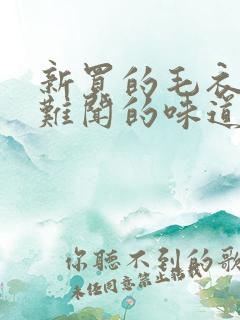 新買的毛衣
難聞的味道
你聽不到的歌
未任同意禁止転載